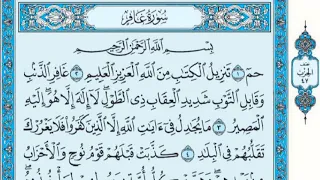 سُورَةُ غَافِرٍ
بِسْمِ اللَّهِ الرَّحْمَٰنِ الرَّحِيمِ
حمٓ ١ تَنزِيلُ الْكِتَٰبِ مِنَ اللَّهِ الْعَزِيزِ الْعَلِيمِ ٢ غَافِرِ الذَّنۢبِ
وَقَابِلِ التَّوْبِ شَدِيدِ الْعِقَابِ ذِي الطَّوْلِ لَآ إِلَٰهَ إِلَّا هُوَ إِلَيْهِ
الْمَصِيرُ ٣ مَا يُجَٰدِلُ فِيٓ ءَايَٰتِ اللَّهِ إِلَّا الَّذِينَ كَفَرُوا فَلَا يَغْرُرْكَ
تَقَلُّبُهُمْ فِي الْبِلَٰدِ ٤ كَذَّبَتْ قَبْلَهُمْ قَوْمُ نُوحٍ وَالْأَحْزَابُ